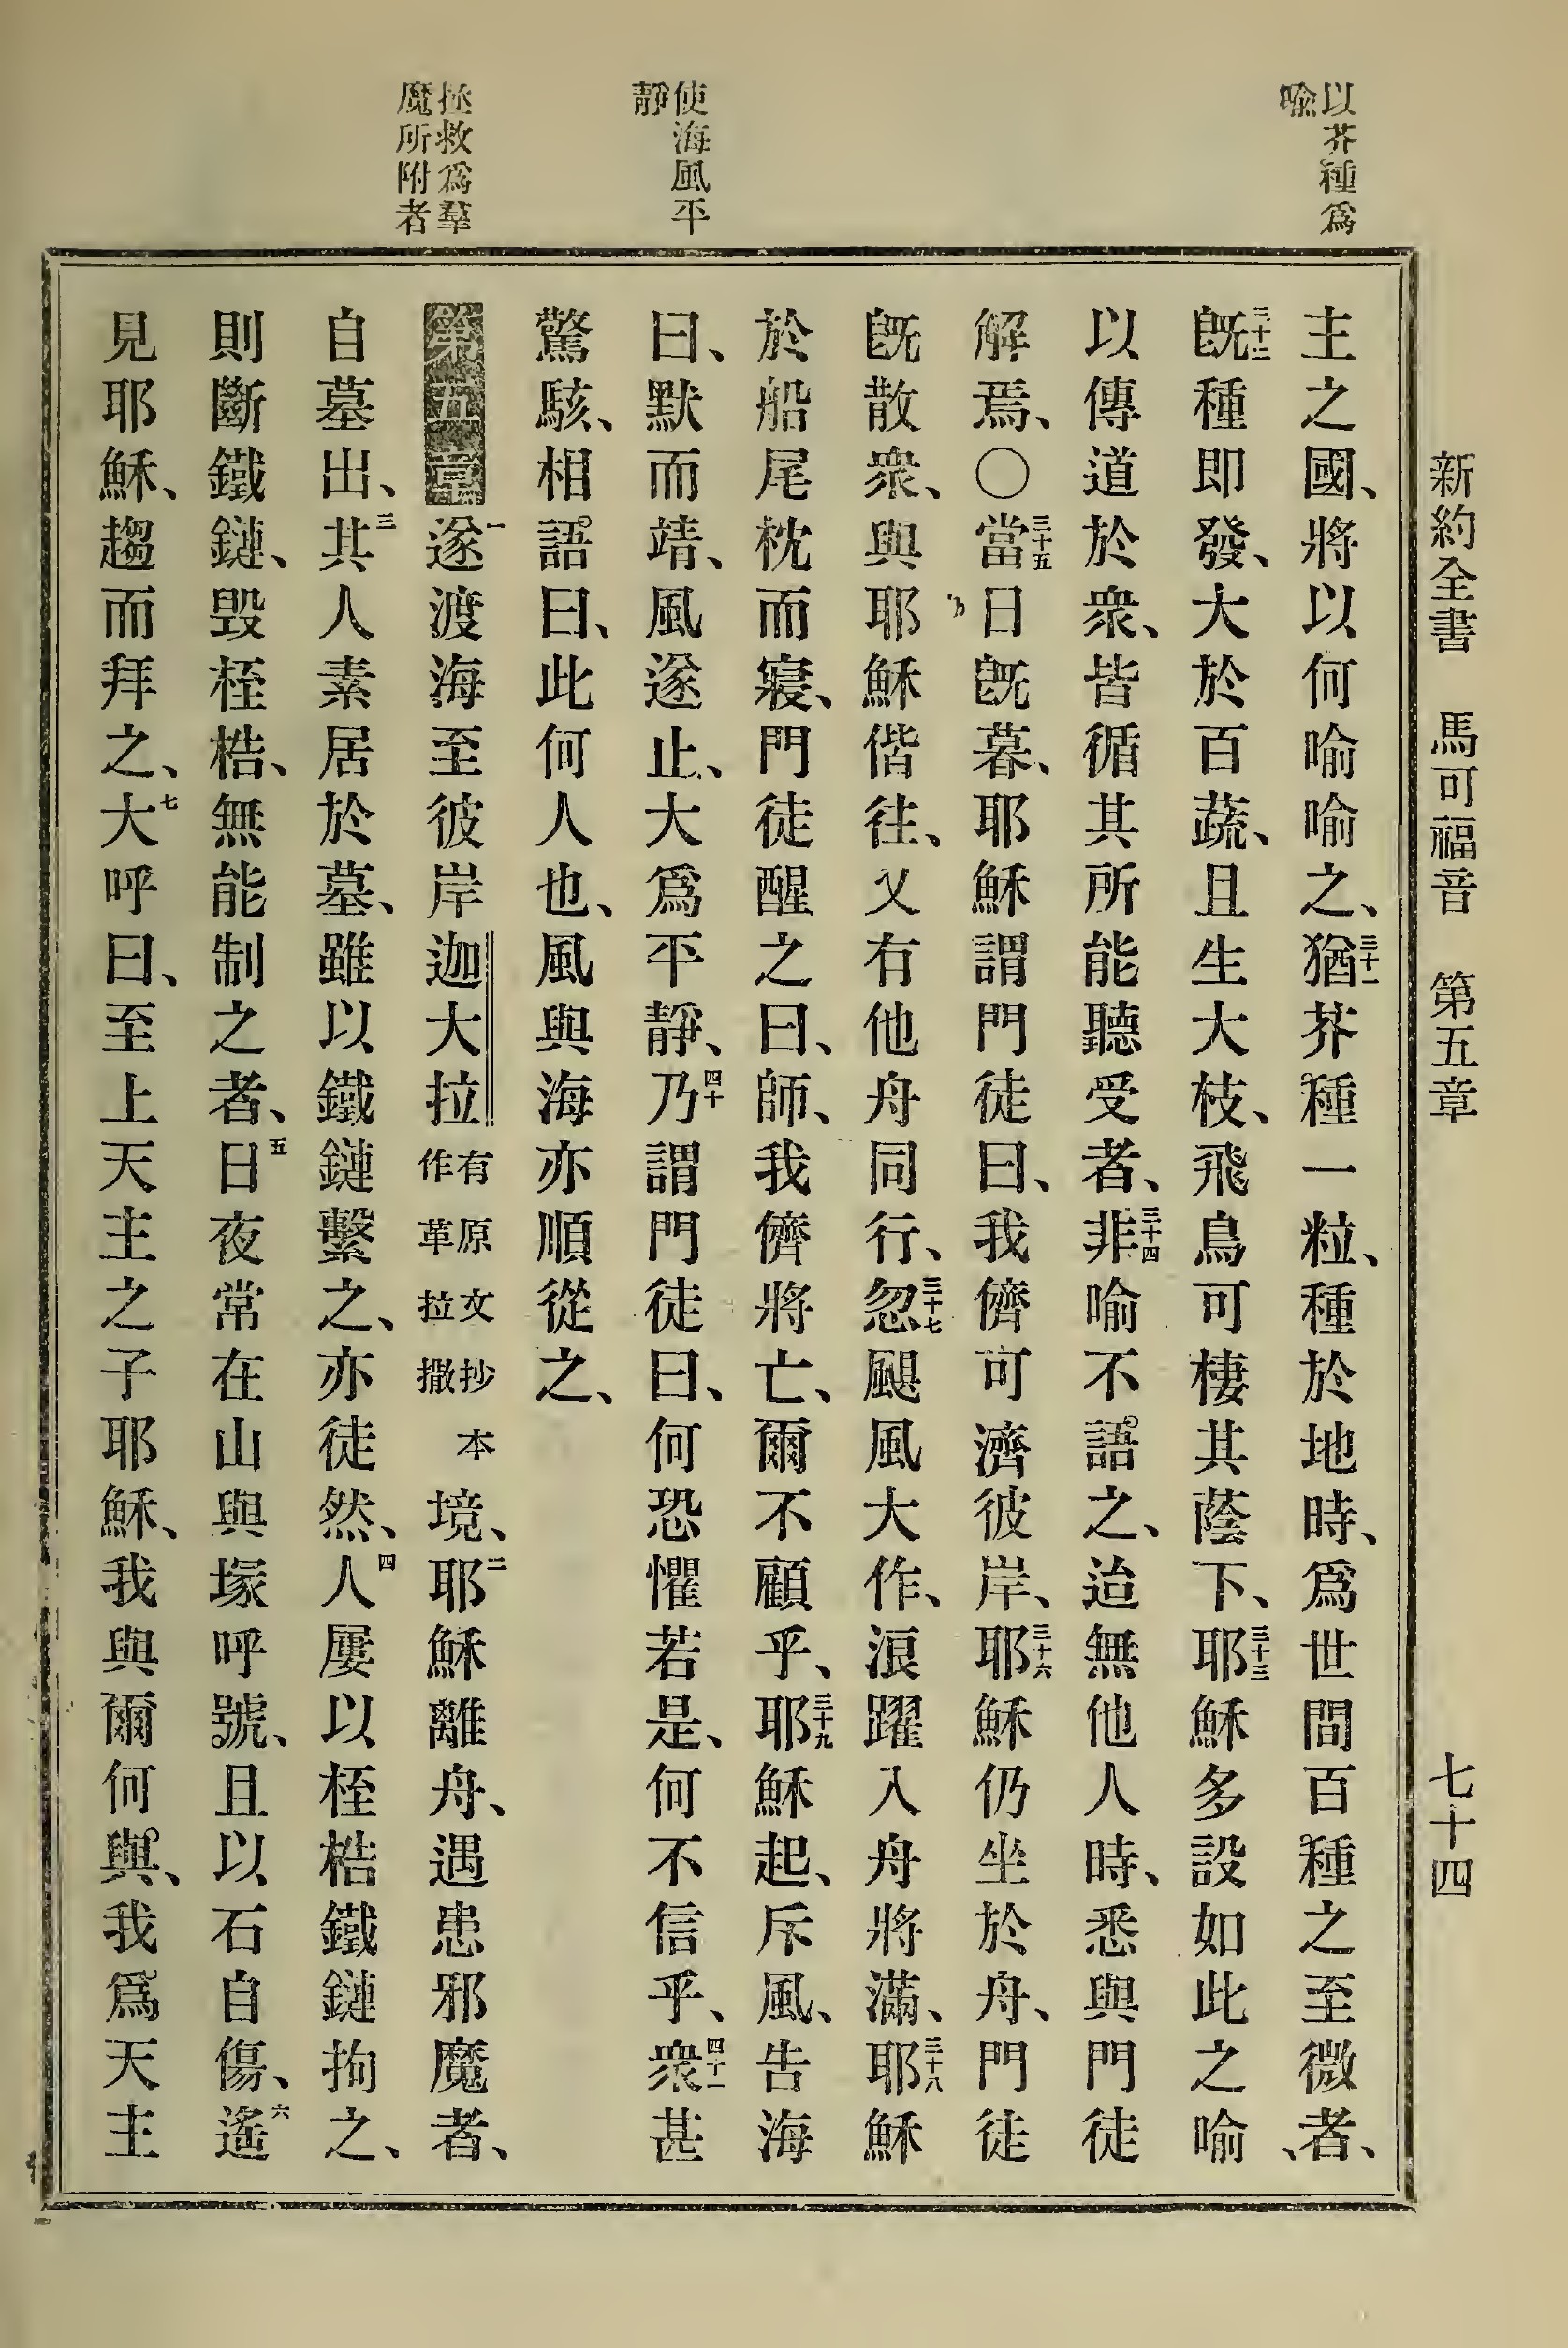 新約全書 馬可福音 第五章 七十四
以芥種爲
喻
使海風平
靜
拯救爲羣
魔所附者
主之國、將以何喻喻之、三十一猶芥種一粒、種於地時、爲世間百種之至微者、
三十二旣種即發、大於百蔬、且生大枝、飛鳥可棲其蔭下、三十三耶穌多設如此之喻、
以傳道於衆、皆循其所能聽受者、三十四非喻不語之、迨無他人時、悉與門徒
解焉、〇三十五當日旣暮、耶穌謂門徒曰、我儕可濟彼岸、三十六耶穌仍坐於舟、門徒
旣散衆、與耶穌偕往、又有他舟同行、三十七忽颶風大作、浪躍入舟將滿、三十八耶穌
於船尾枕而寢、門徒醒之曰、師、我儕將亡、爾不顧乎、三十九耶穌起、斥風、告海
曰、默而靖、風遂止、大爲平靜、四十乃謂門徒曰、何恐懼若是、何不信乎、四十一衆甚
驚駭、相語曰、此何人也、風與海亦順從之、
第五章 一遂渡海至彼岸迦大拉有原文抄本作革拉撒境、二耶穌離舟、遇患邪魔者、
自墓出、三其人素居於墓、雖以鐵鏈繫之、亦徒然、四人屢以桎梏鐵鏈拘之、
則斷鐵鏈、毀桎梏、無能制之者、五日夜常在山與塚呼號、且以石自傷、六遙
見耶穌、趨而拜之、七大呼曰、至上天主之子耶穌、我與爾何與、我爲天主